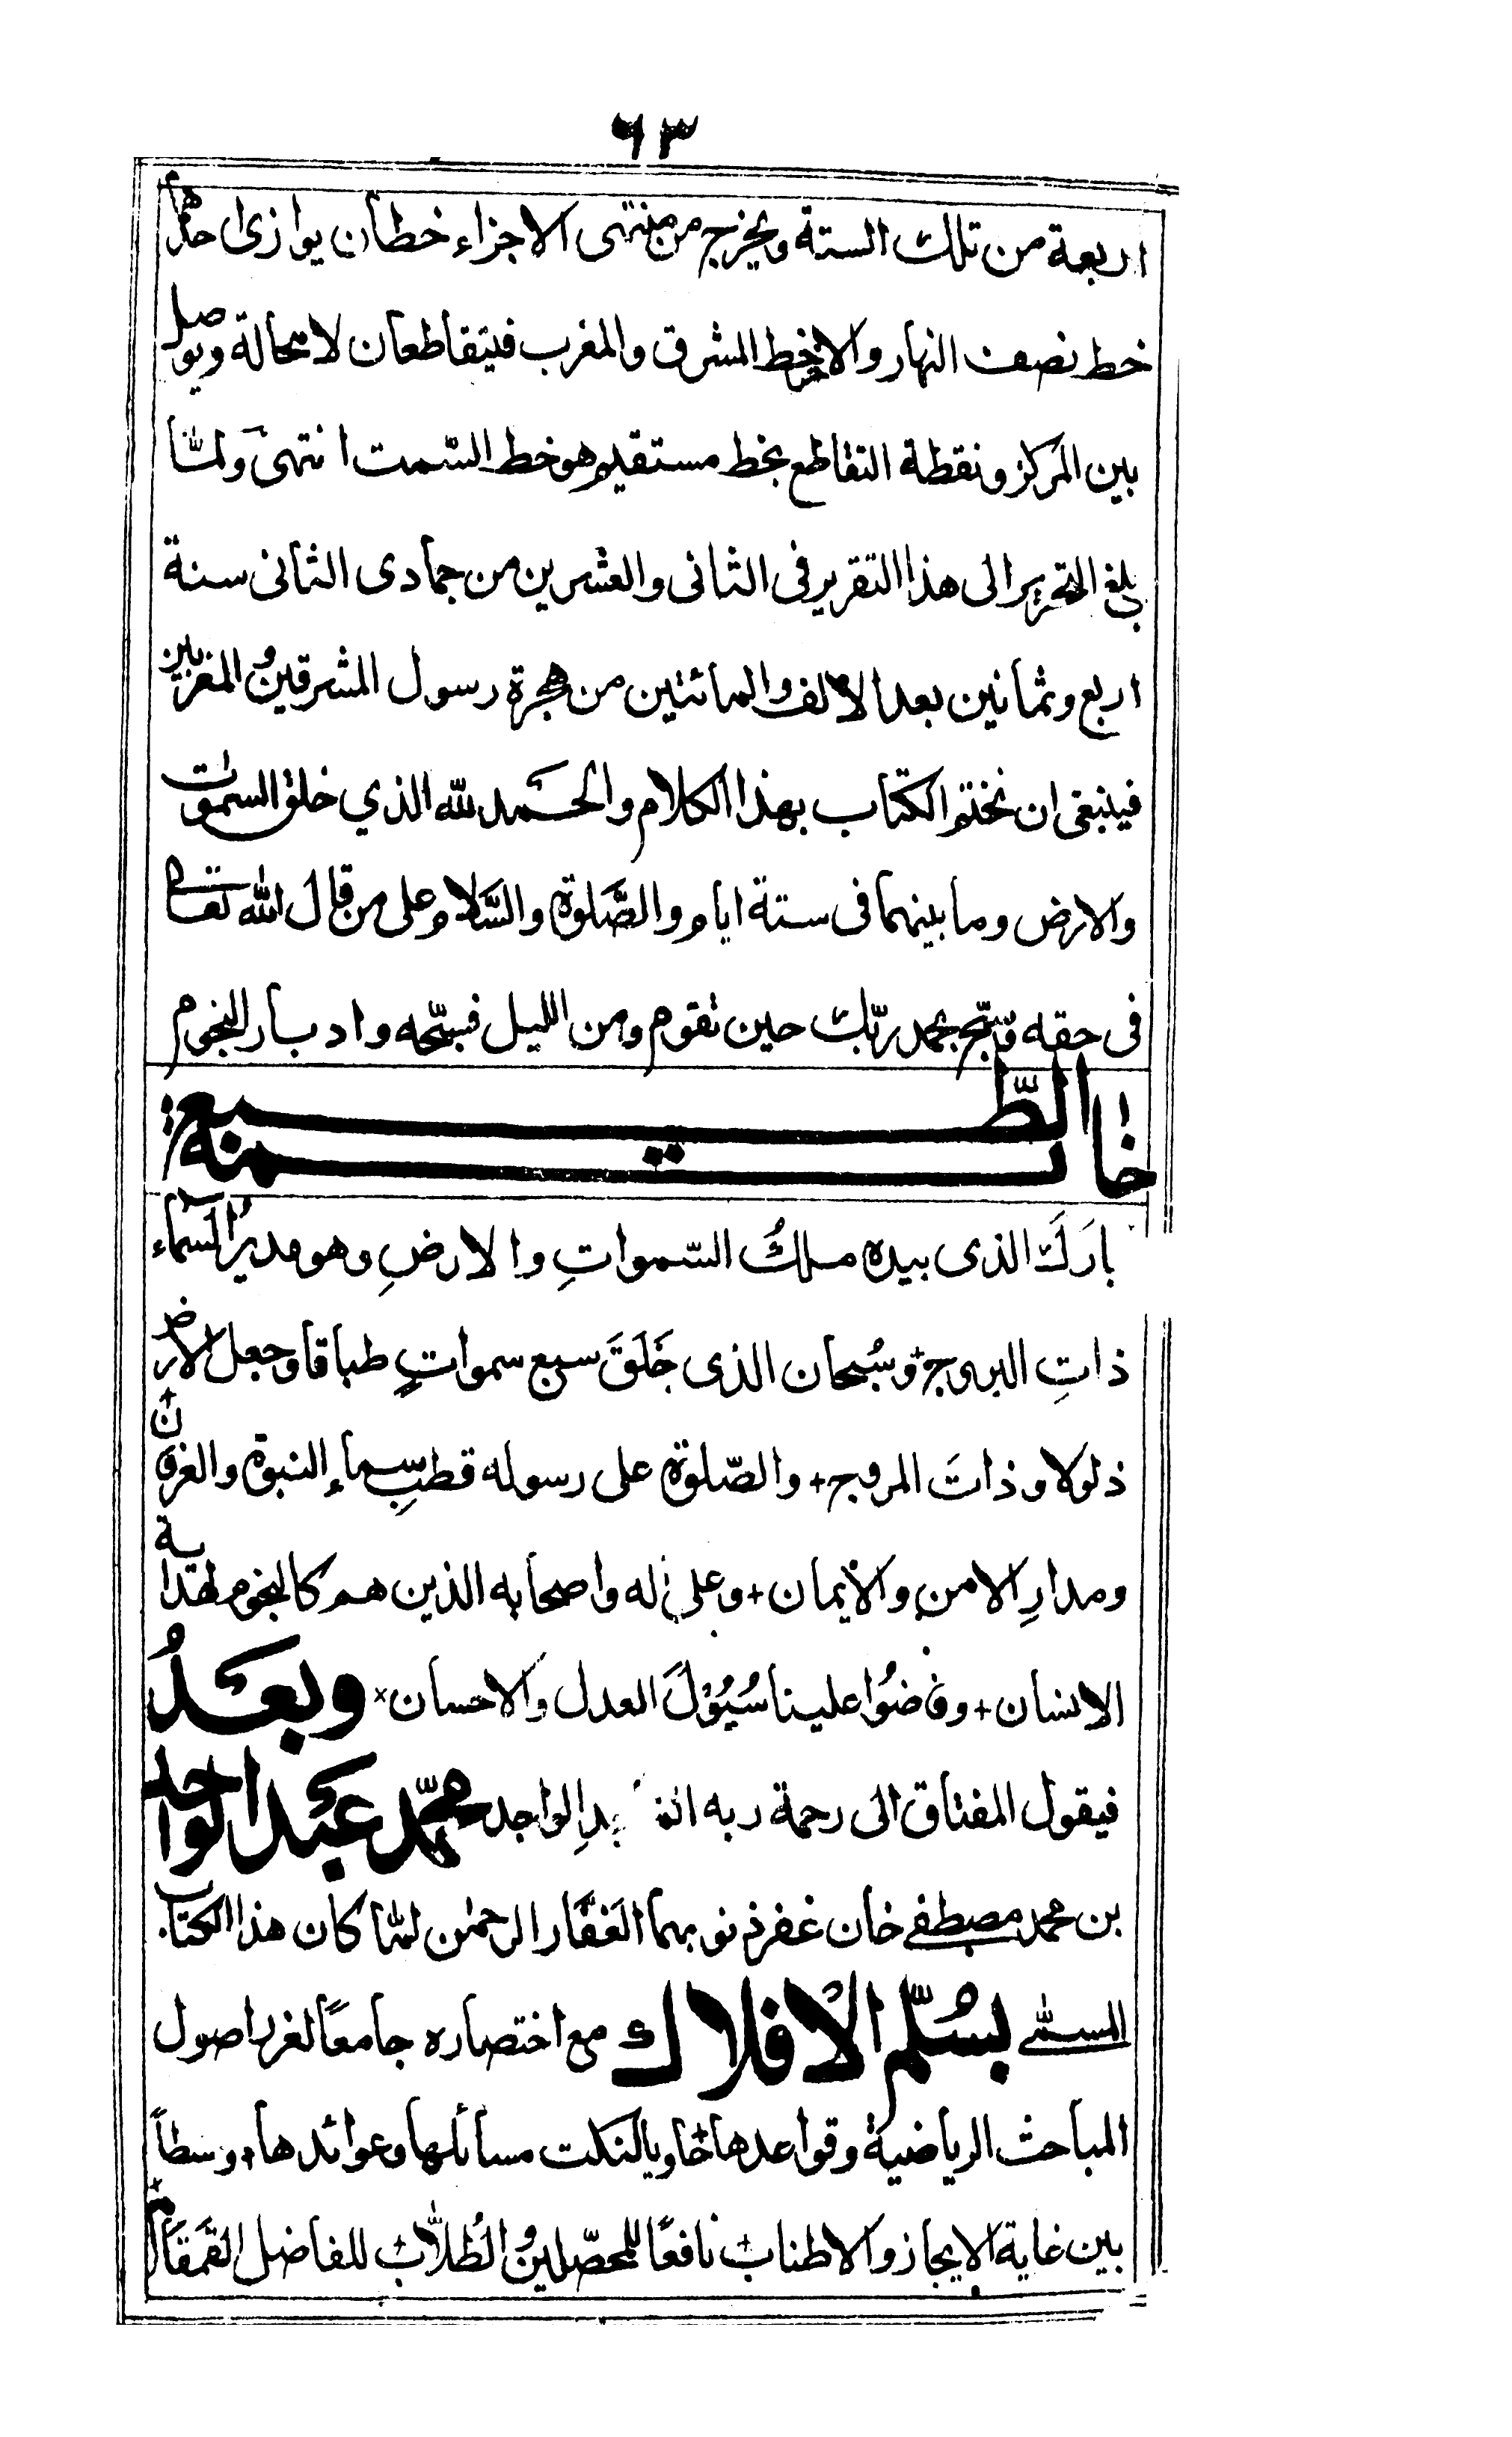 ٦٣
اربعة من تلك الستة ويخرج من منتهى الاجزاء خطان يوازى احدهما
خط نصف النهار والاخر خط المشرق والمغرب فيتقاطعان لا محالة ويوصل
بين المركز ونقطة التقاطع بخط مستقيم هو خط السّمت انتهى ولمّا
بلغ التحرير الى هذا التقرير فى الثانى والعشرين من جمادى الثانى سنة
اربع وثمانين بعد الالف والمائتين من هجرة رسول المشرقين والمغربين
فينبغى ان نختم الكتاب بهذا الكلام والحَمد لله الذي خلق السموات
والارض وما بينهما فى ستة ايام والصَّلوة والسَّلام على من قال الله تعالى
فى حقه فسبّح بحمد ربّك حين تقوم ومن الليل فسبّحه وادبار النجوم
خاتمة الطّبع
بارَكَ الذى بيده ملكُ السّمواتِ والارضِ وهو مديرُ السّماء
ذاتِ البروج + وسُبحان الذى خَلَقَ سبع سمواتٍ طباقا وجعل الارض
ذلولا وذاتَ المروج + والصّلوة على رسوله قطبِ سماءِ النبوة والعرفان +
ومدارِ الامنِ والايمان + وعلى اله واصحابه الذين هم كالنجوم لهداية
الانسان + وفاضُوا علينا سُيُوْلَ العدل والاحسان × وبعَدُ
فيقول المفتاق الى رحمة ربه الواجد محمّد عبَد الواحد
بن محمد مصطفے خان غفر ذنوبهما الغَفَّار الرحمٰن لمّا كان هذا الكتاب
المسمّٰے بسُلّم الافلاك مع اختصاره جامعًا لغرر اصول
المباحث الرياضية وقواعدها + حاويا لنكت مسائلها وعوائدها + وسطاً
بين غاية الايجاز والاطناب + نافعًا للمحصّلين والطُلّاب للفاضل القمقام